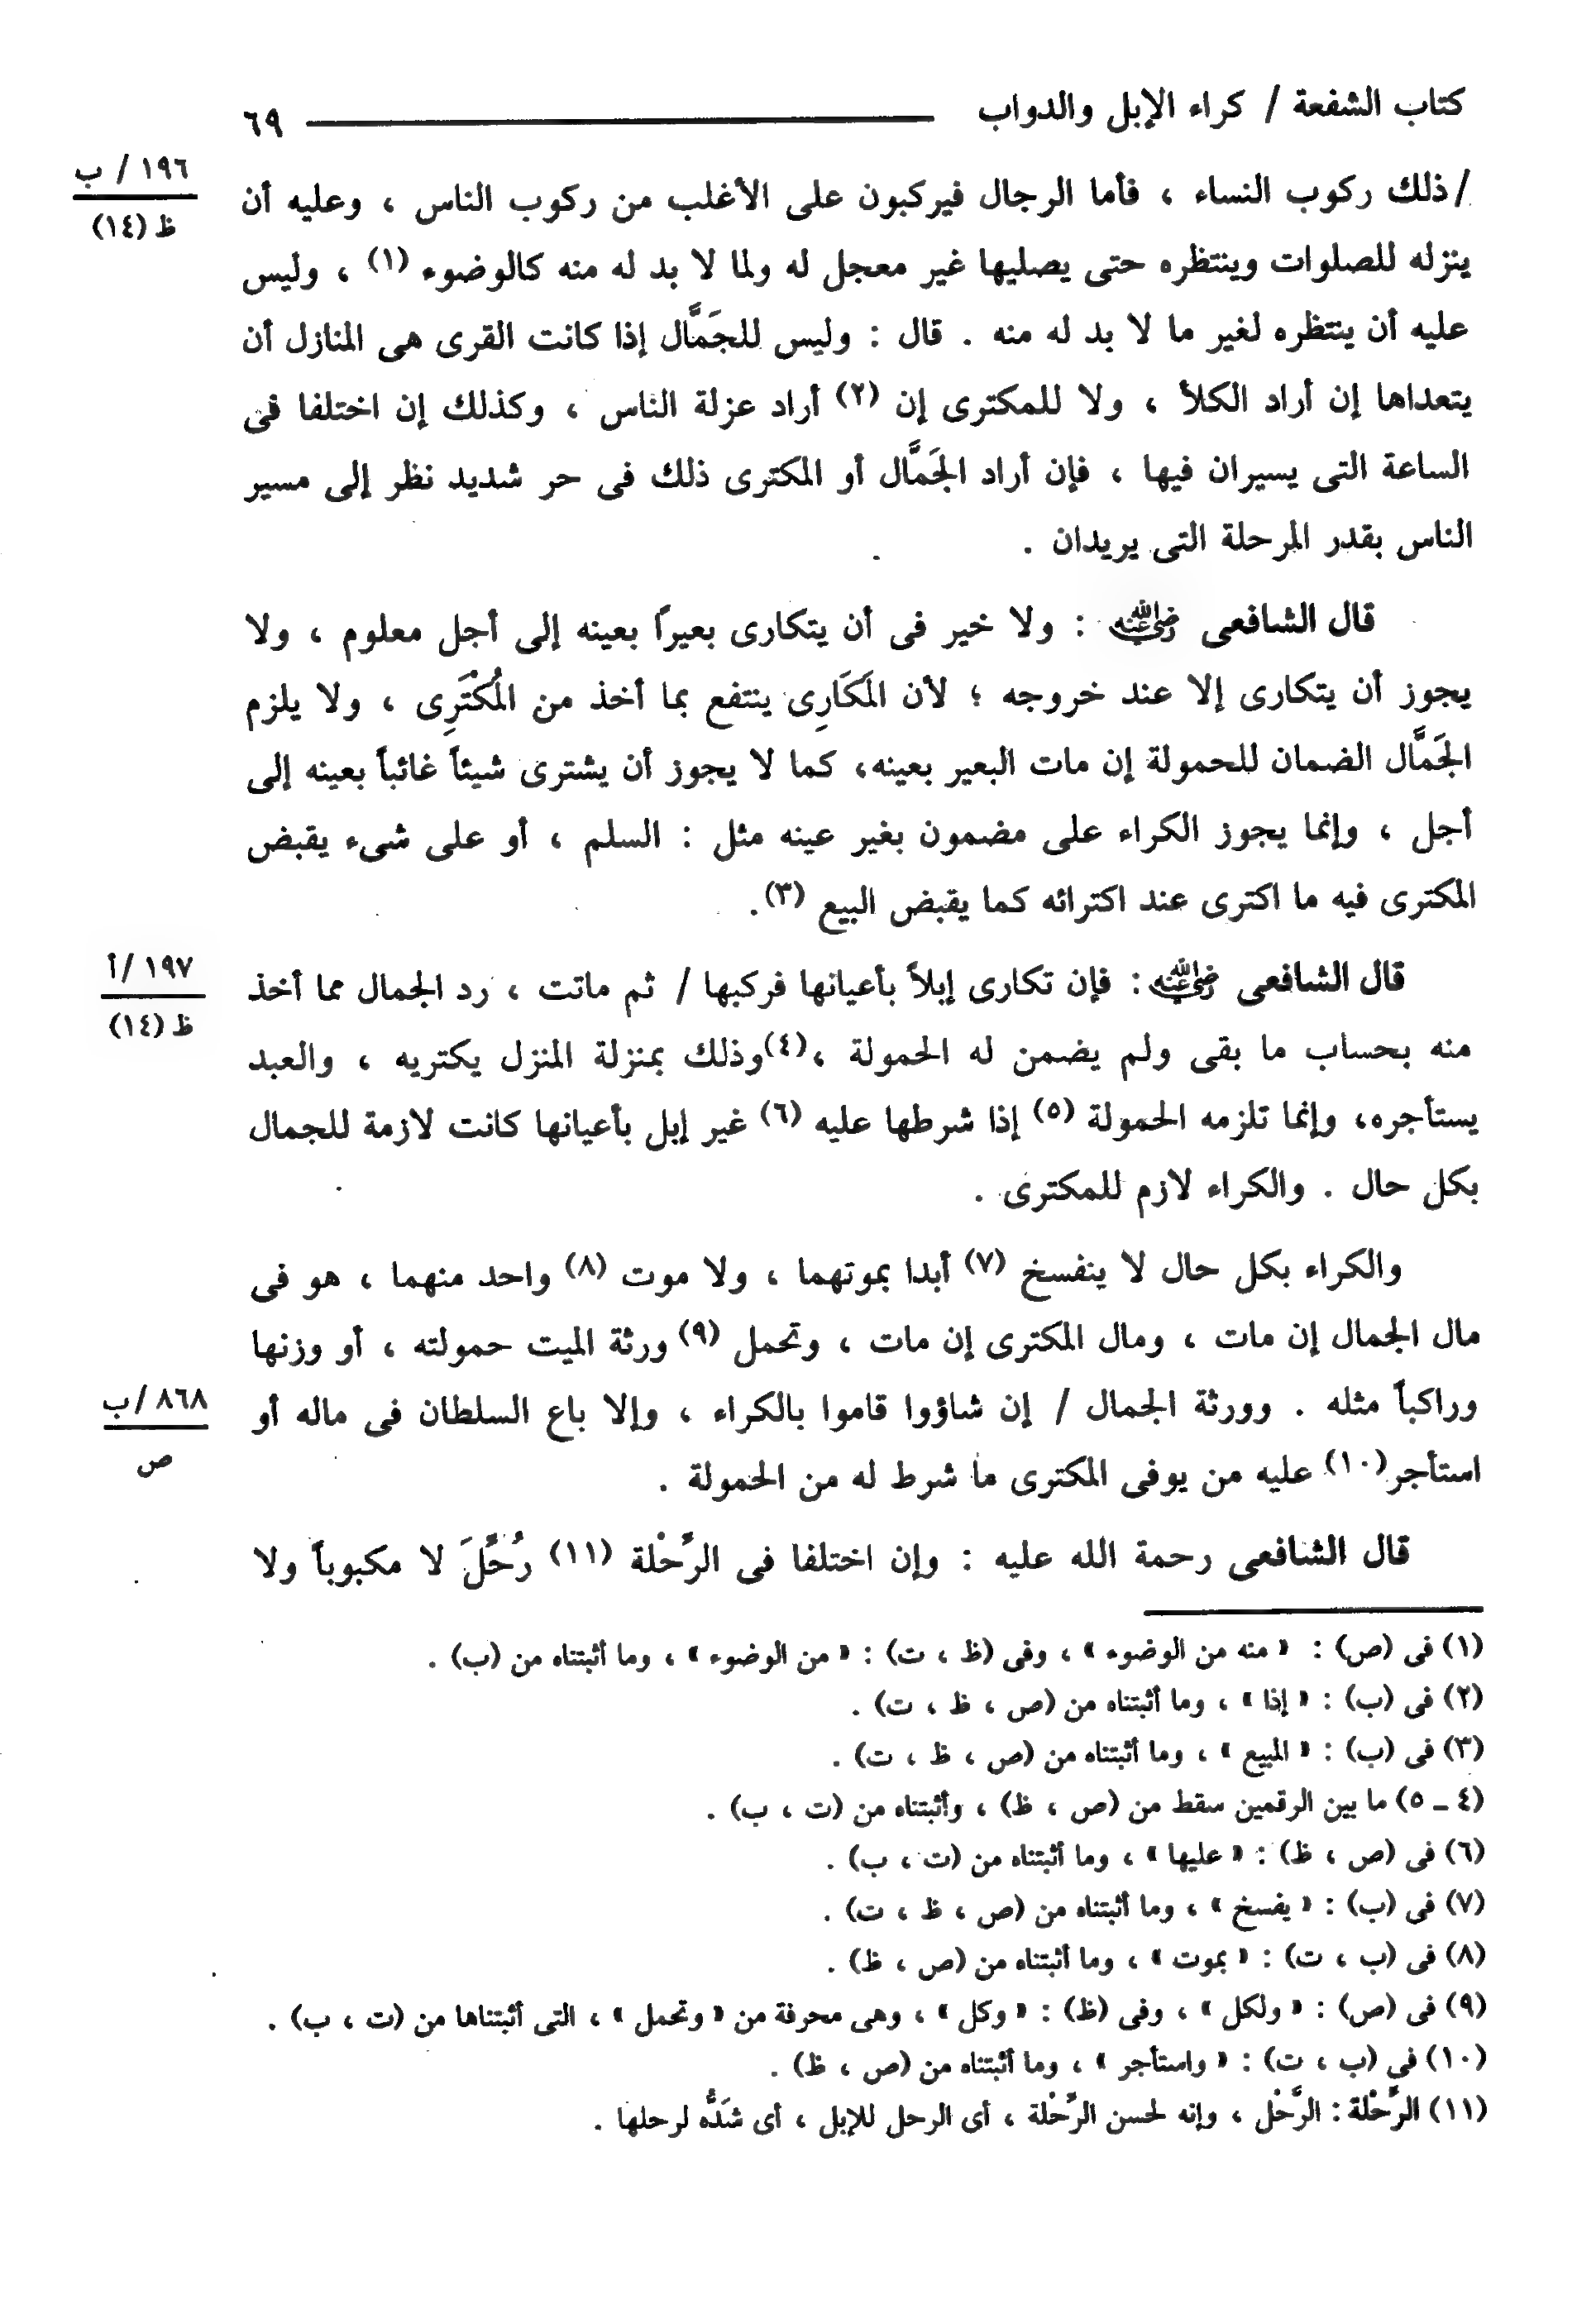 كتاب الشفعة / كراء الإبل والدواب ٦٩
/ذلك ركوب النساء ، فأما الرجال فيركبون على الأغلب من ركوب الناس ، وعليه أن
١٩٦ / ب
ظ (١٤)
ينزله للصلوات وينتظره حتى يصليها غير معجل له ولما لا بد له منه كالوضوء (١) ، وليس
عليه أن ينتظره لغير ما لا بد له منه . قال : وليس للجَمَّال إذا كانت القرى هى المنازل أن
يتعداها إن أراد الكلأ ، ولا للمكترى إن (٢) أراد عزلة الناس ، وكذلك إن اختلفا فى
الساعة التى يسيران فيها ، فإن أراد الجَمَّال أو المكترى ذلك فى حر شديد نظر إلى مسير
الناس بقدر المرحلة التى يريدان .
قال الشافعى رضي الله عنه : ولا خير فى أن يتكارى بعيراً بعينه إلى أجل معلوم ، ولا
يجوز أن يتكارى إلا عند خروجه ؛ لأن المَكَارِى ينتفع بما أخذ من المُكْتَرِى ، ولا يلزم
الجَمَّال الضمان للحمولة إن مات البعير بعينه، كما لا يجوز أن يشترى شيئاً غائباً بعينه إلى
أجل ، وإنما يجوز الكراء على مضمون بغير عينه مثل : السلم ، أو على شىء يقبض
المكترى فيه ما اكترى عند اكترائه كما يقبض البيع (٣).
قال الشافعى رضي الله عنه : فإن تكارى إبلاً بأعيانها فركبها / ثم ماتت ، رد الجمال مما أخذ
١٩٧ /أ
ظ (١٤)
منه بحساب ما بقى ولم يضمن له الحمولة ،(٤)وذلك بمنزلة المنزل يكتريه ، والعبد
يستأجره، وإنما تلزمه الحمولة (٥) إذا شرطها عليه (٦) غير إبل بأعيانها كانت لازمة للجمال
بكل حال . والكراء لازم للمكترى .
والكراء بكل حال لا ينفسخ (٧) أبدا بموتهما ، ولا موت (٨) واحد منهما ، هو فى
مال الجمال إن مات ، ومال المكترى إن مات ، وتحمل (٩) ورثة الميت حمولته ، أو وزنها
وراكباً مثله . وورثة الجمال / إن شاؤوا قاموا بالكراء ، وإلا باع السلطان فى ماله أو
٨٦٨ /ب
ص
استأجر(١٠) عليه من يوفى المكترى ما شرط له من الحمولة .
قال الشافعى رحمة الله عليه : وإن اختلفا فى الرِّحْلة (١١) رُحِّلَ لا مكبوباً ولا
(١) فى (ص) : « منه من الوضوء » ، وفى (ظ ، ت) : « من الوضوء » ، وما أثبتناه من (ب) .
(٢) فى (ب) : « إذا » ، وما أثبتناه من (ص ، ظ ، ت) .
(٣) فى (ب) : « المبيع » ، وما أثبتناه من (ص ، ظ ، ت) .
(٤ ـ ٥) ما بين الرقمين سقط من (ص ، ظ) ، وأثبتناه من (ت ، ب) .
(٦) فى (ص ، ظ) : « عليها » ، وما أثبتناه من (ت ، ب) .
(٧) فى (ب) : « يفسخ » ، وما أثبتناه من (ص ، ظ ، ت) .
(٨) فى (ب ، ت) : « بموت » ، وما أثبتناه من (ص ، ظ) .
(٩) فى (ص) : « ولكل » ، وفى (ظ) : « وكل » ، وهى محرفة من « وتحمل » ، التى أثبتناها من (ت ، ب) .
(١٠) في (ب ، ت) : « واستأجر » ، وما أثبتناه من (ص ، ظ) .
(١١) الرِّحْلة : الرَّحْل ، وإنه لحسن الرِّحْلة ، أى الرحل للإبل ، أى شَدُّه لرحلها .